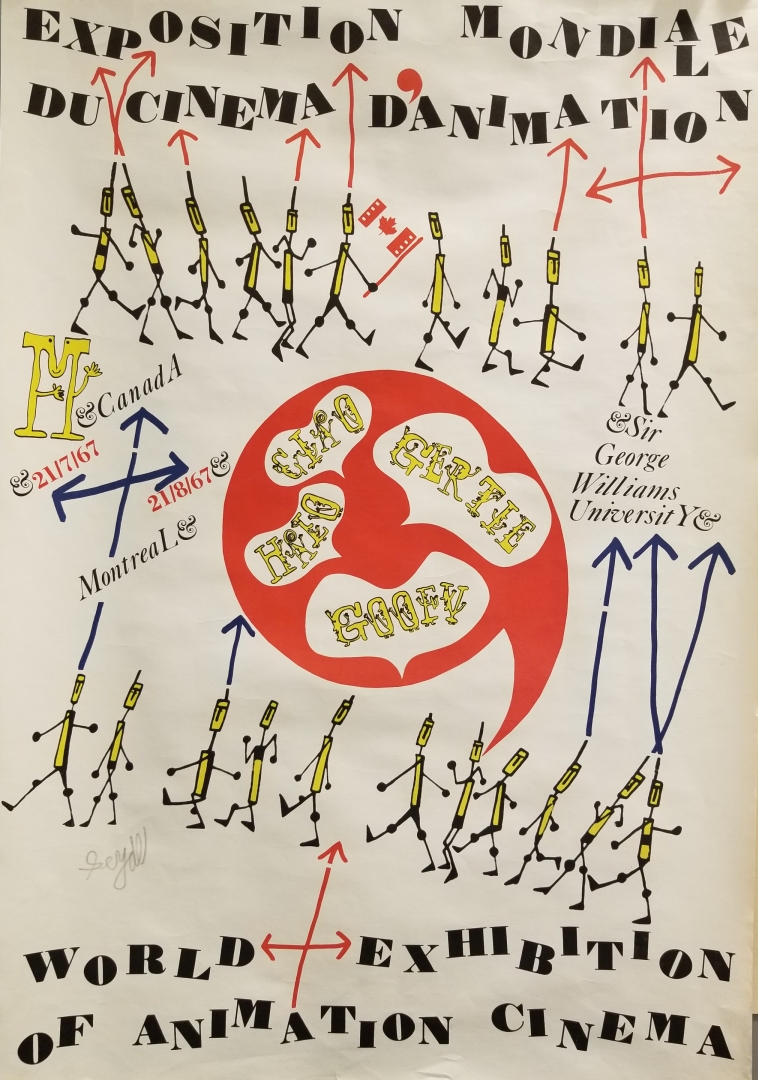 EXPOSITION MONDIALE
DU CINEMA D'ANIMATION
M
& CanadA
& 21/7/67
21/8/67 &
MontreaL &
& Sir
George
Williams
UniversitY &
CIAO
GERTIE
HALO
GOOFY
WORLD EXHIBITION
OF ANIMATION CINEMA